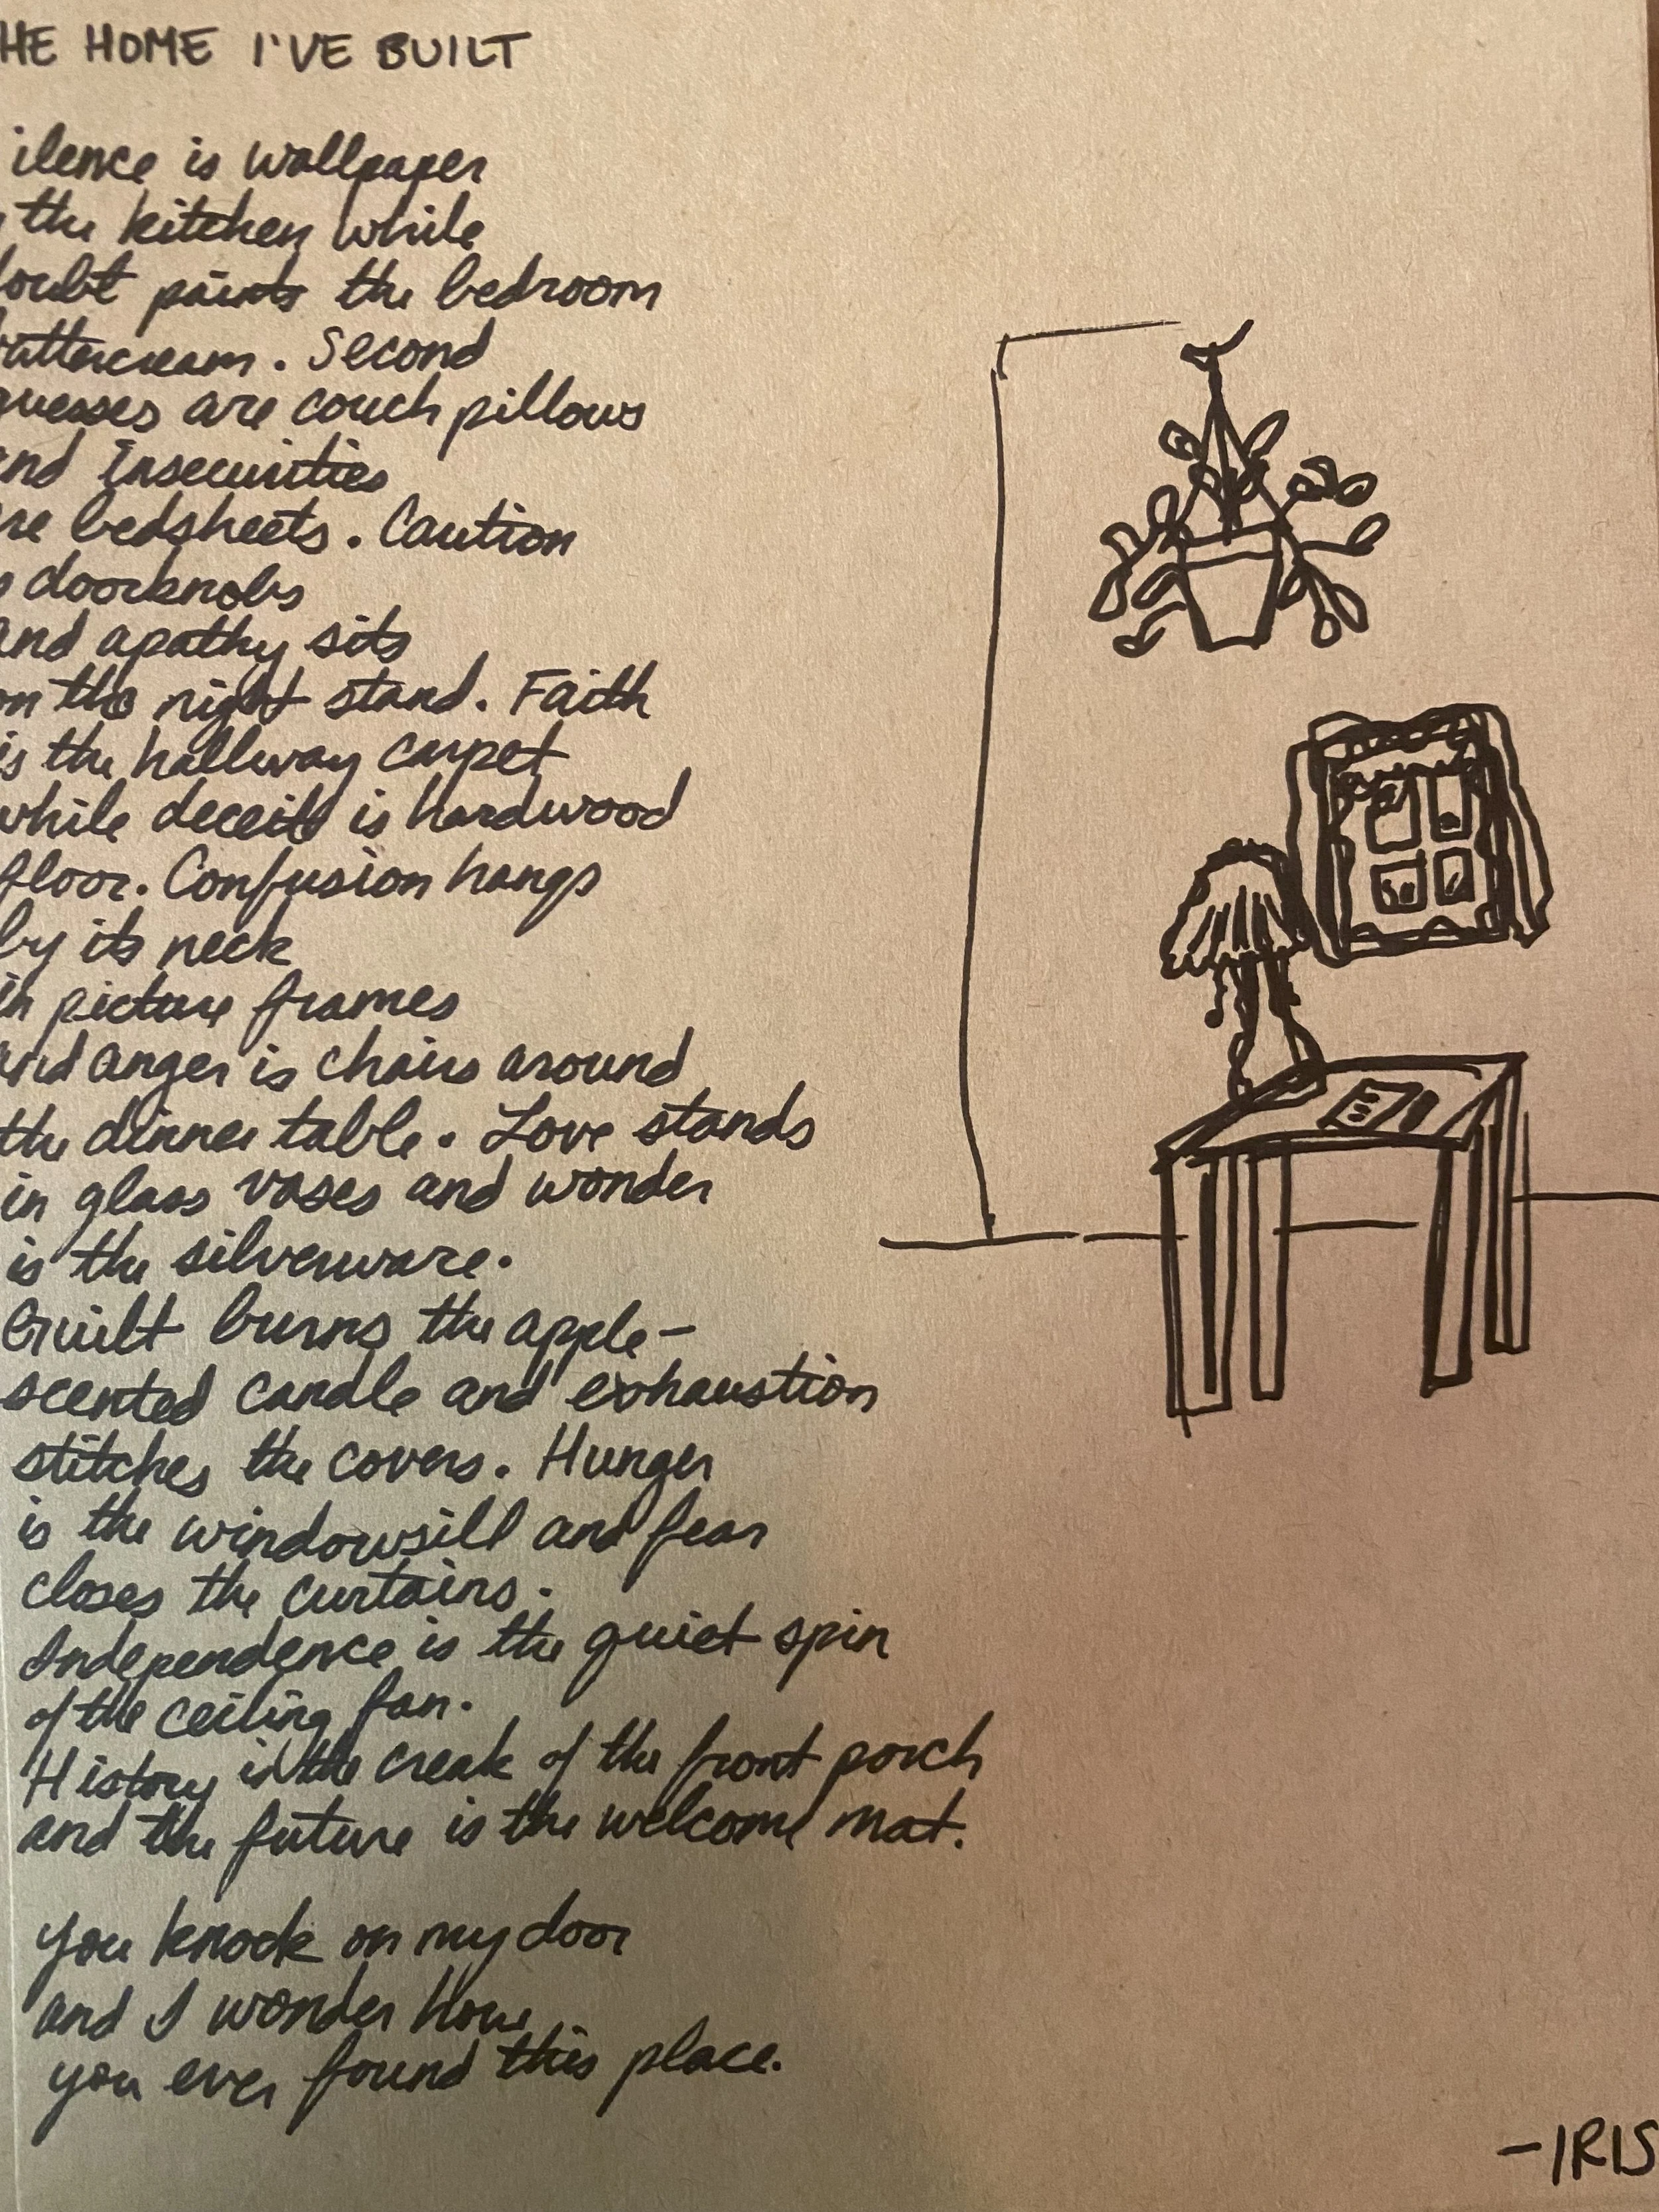 HE HOME I'VE BUILT
ilence is wallpaper
the kitchen while
oubt paints the bedroom
uttercream. Second
guesses are couch pillows
and Insecurities
re bedsheets. Caution
s doorknobs
and apathy sits
on the night stand. Faith
is the hallway carpet
while deceit is hardwood
floor. Confusion hangs
by its neck
in picture frames
and anger is chairs around
the dinner table. Love stands
in glass vases and wonder
is the silverware.
Guilt burns the apple-
scented candle and exhaustion
stitches the covers. Hunger
is the windowsill and fear
closes the curtains.
Independence is the quiet spin
of the ceiling fan.
History is the creak of the front porch
and the future is the welcome mat.
you knock on my door
and I wonder how
you ever found this place.
-IRIS